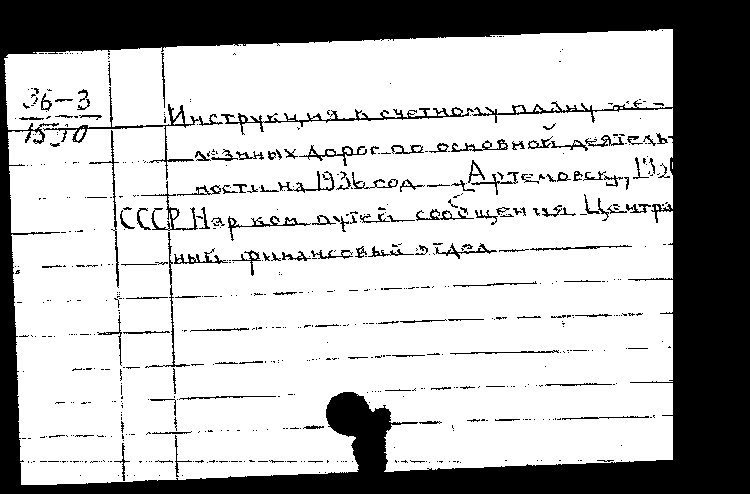 36-3
15510
Инструкция к счетному плану же-
лезных дорог по основной деятель-
ности на 1936 год „Артемовск„, 193
СССР Нар ком путей сообщения Центра
ный финансовый отдел